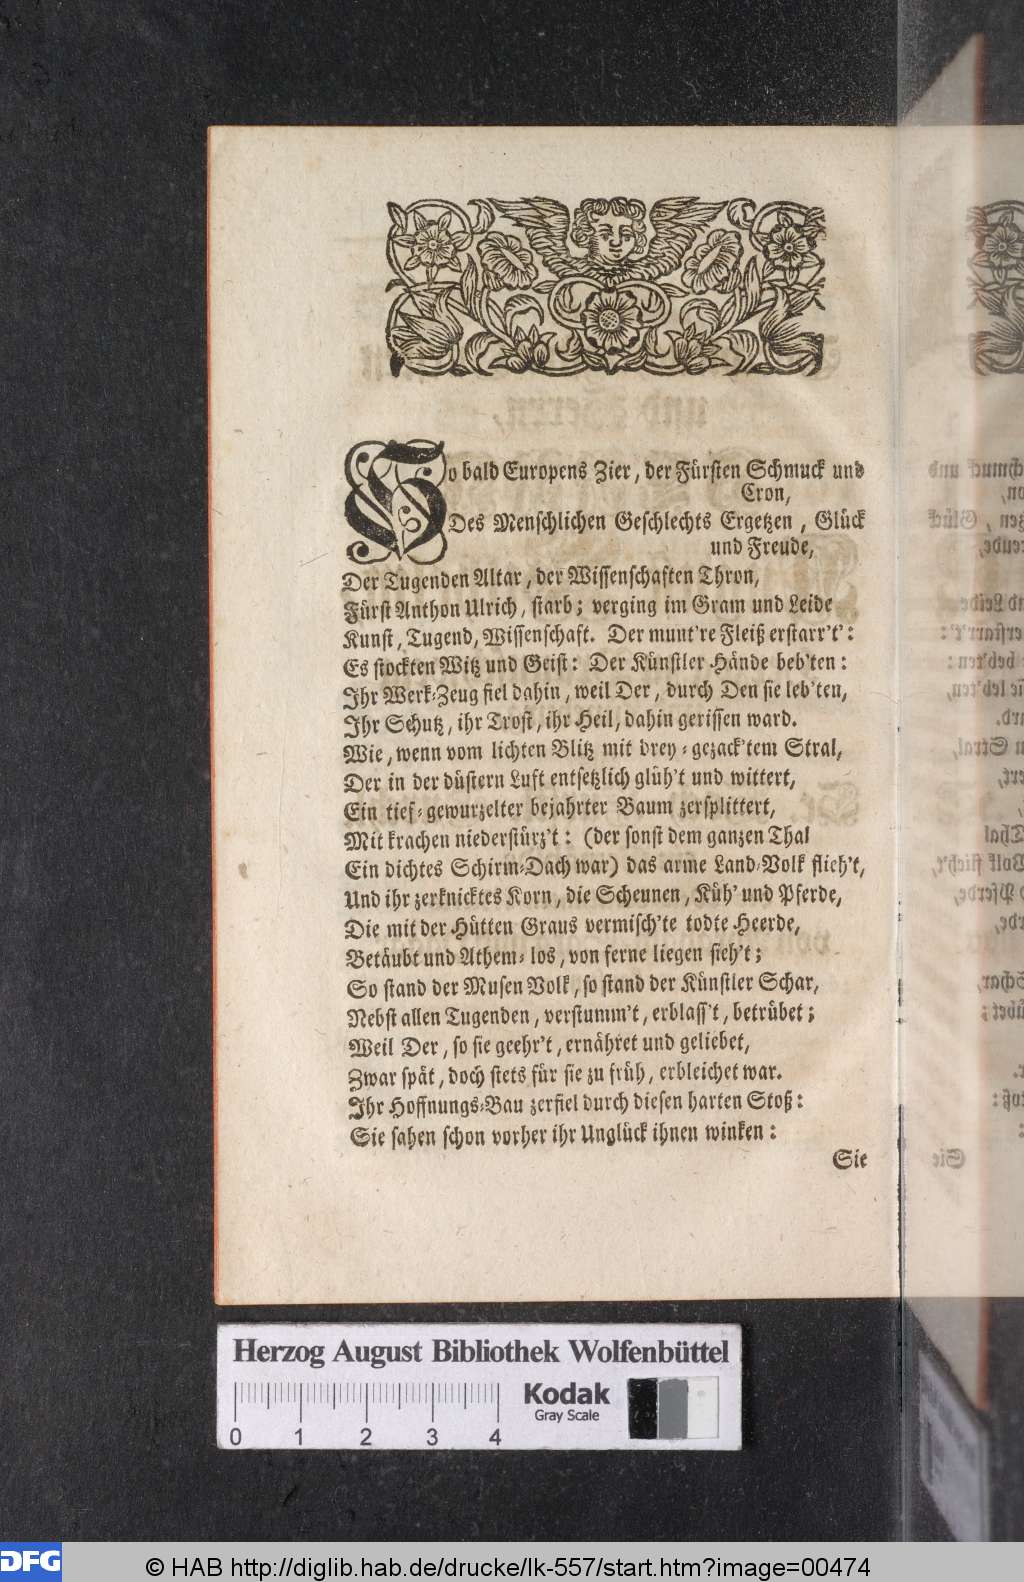 So bald Europens Zier, der Fürsten Schmuck und
Cron,
Des Menschlichen Geschlechts Ergetzen, Glück
und Freude,
Der Tugenden Altar, der Wissenschaften Thron,
Fürst Anthon Ulrich, starb; verging im Gram und Leide
Kunst, Tugend, Wissenschaft. Der munt're Fleiß erstarr't':
Es stockten Witz und Geist: Der Künstler Hände beb'ten:
Ihr Werk-Zeug fiel dahin, weil Der, durch Den sie leb'ten,
Ihr Schutz, ihr Trost, ihr Heil, dahin gerissen ward.
Wie, wenn vom lichten Blitz mit drey-gezack'tem Stral,
Der in der düstern Luft entsetzlich glüh't und wittert,
Ein tief-gewurzelter bejahrter Baum zersplittert,
Mit krachen niederstürz't: (der sonst dem ganzen Thal
Ein dichtes Schirm-Dach war) das arme Land-Volk flieh't,
Und ihr zerknicktes Korn, die Scheunen, Küh' und Pferde,
Die mit der Hütten Graus vermisch'te todte Heerde,
Betäubt und Athem-los, von ferne liegen sieh't;
So stand der Musen Volk, so stand der Künstler Schar,
Nebst allen Tugenden, verstumm't, erblass't, betrübet;
Weil Der, so sie geehr't, ernähret und geliebet,
Zwar spät, doch stets für sie zu früh, erbleichet war.
Ihr Hoffnungs-Bau zerfiel durch diesen harten Stoß:
Sie sahen schon vorher ihr Unglück ihnen winken:
Sie
Herzog August Bibliothek Wolfenbüttel
Kodak
Gray Scale
0 1 2 3 4
DFG
© HAB http://diglib.hab.de/drucke/lk-557/start.htm?image=00474